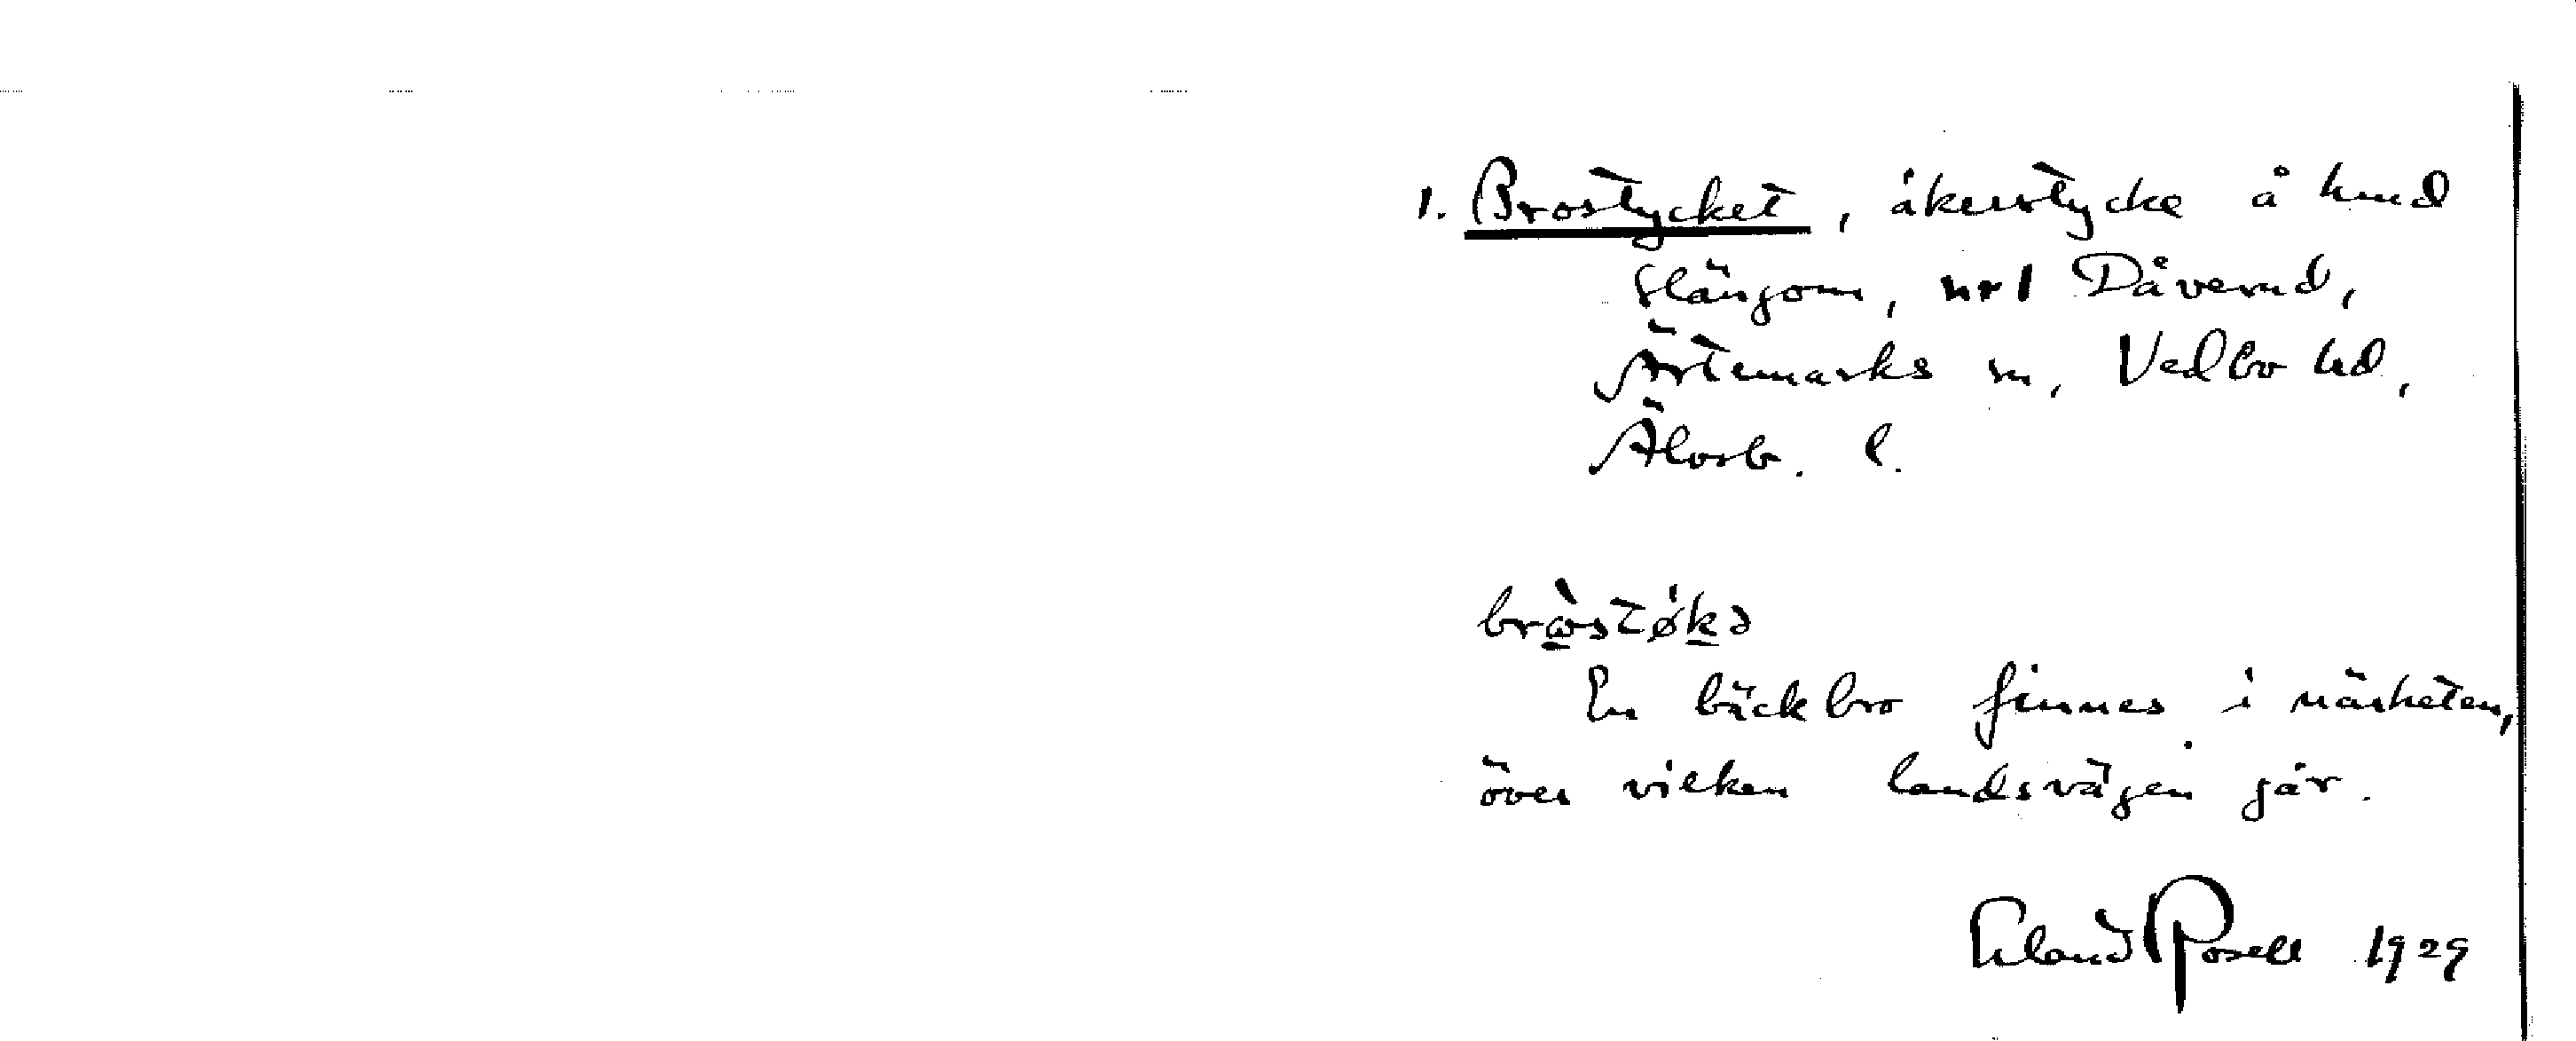 1. Brostycket, åkerstycke å hmd
Slängom, nr 1 Dåverud,
Ärtemarks sn, Vedbo hd,
Älvsb. l.
brὼstǿkə
En bäckbro finnes i närheten,
över vilken landsvägen går.
Erland Rosell 1929